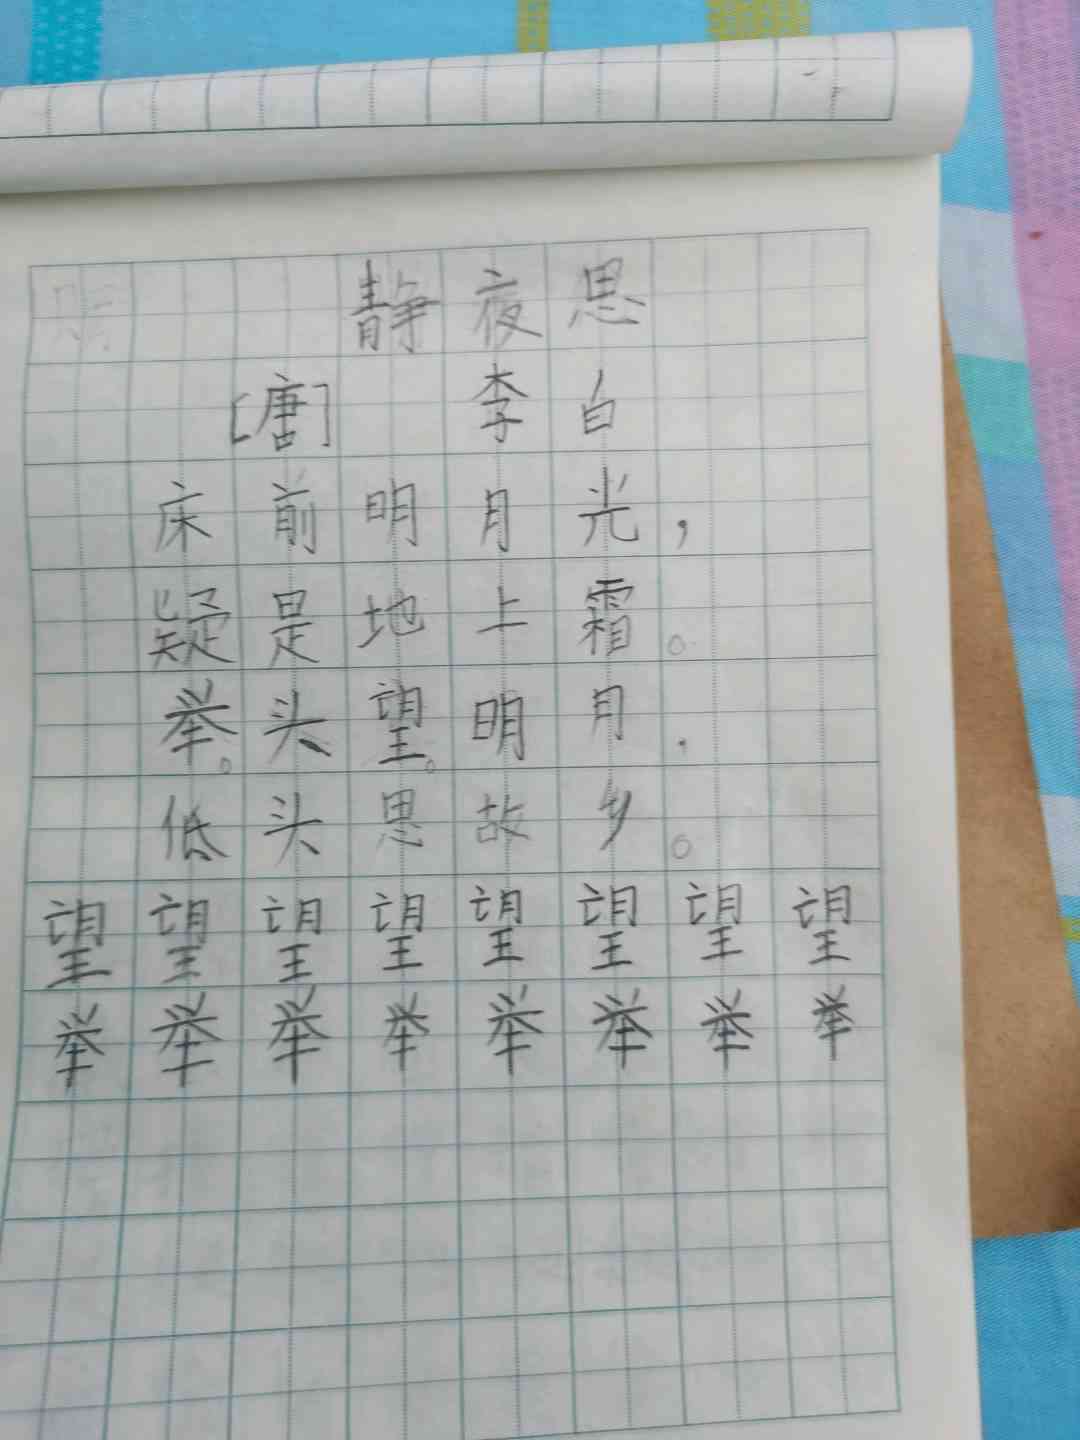 静夜思
[唐] 李白
床前明月光，
疑是地上霜。
举。头望。明月.
低头思故乡。
望望望望望望望望
举举举举举举举举